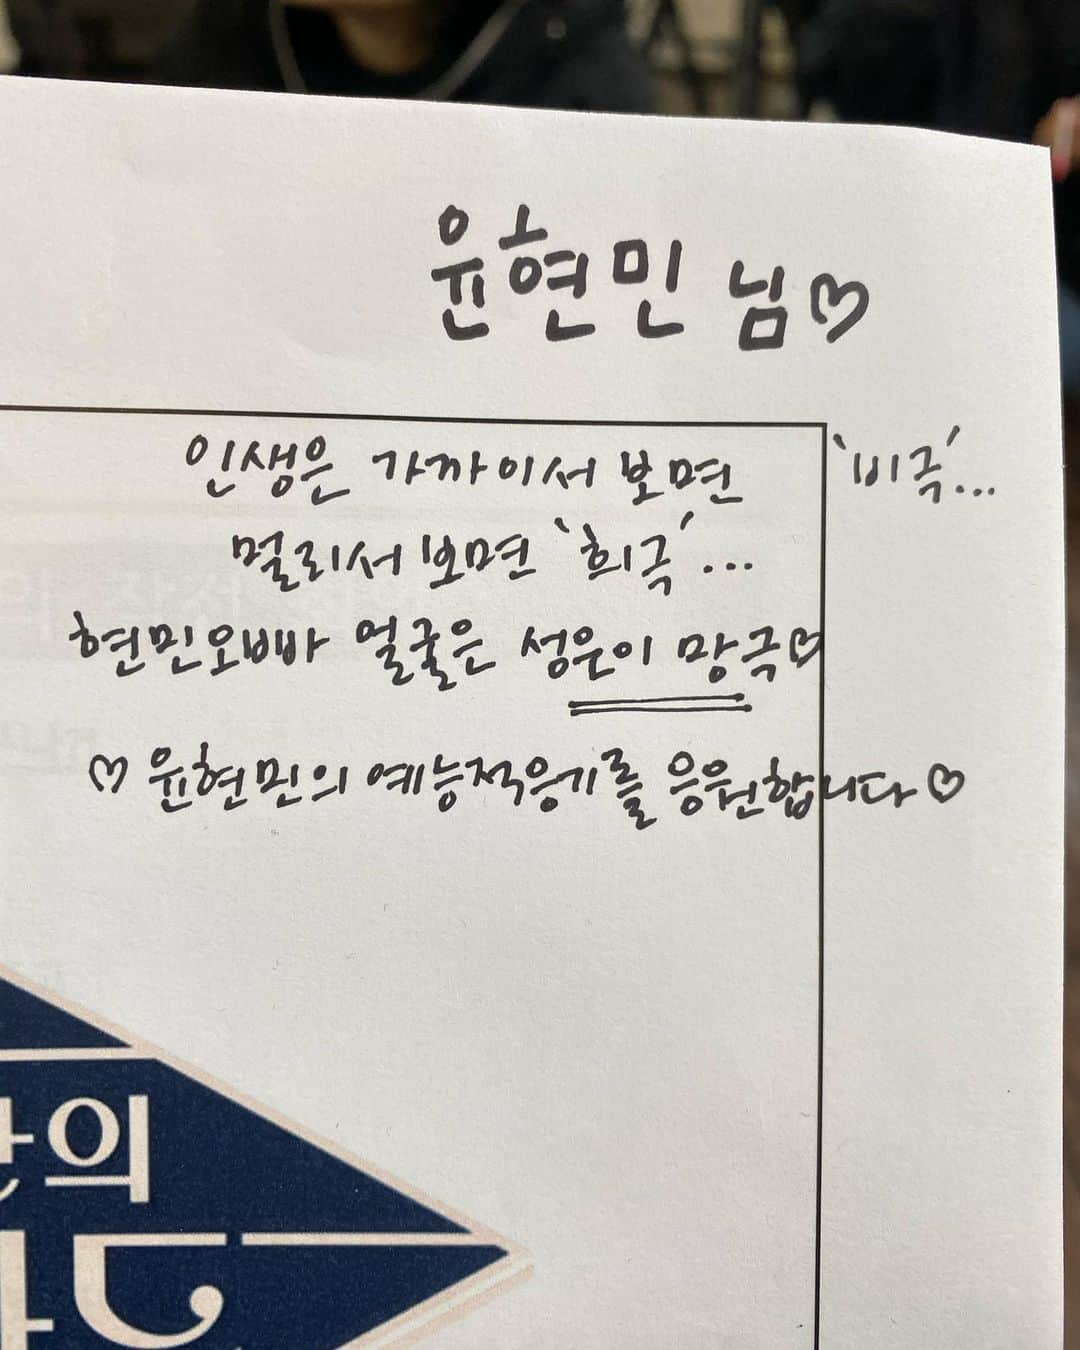 윤현민 님♡
인생은 가까이서 보면 '비극'...
멀리서 보면 '희극'...
현민오빠 얼굴은 성은이 망극♡
♡ 윤현민의 예능적응기를 응원합니다 ♡
의